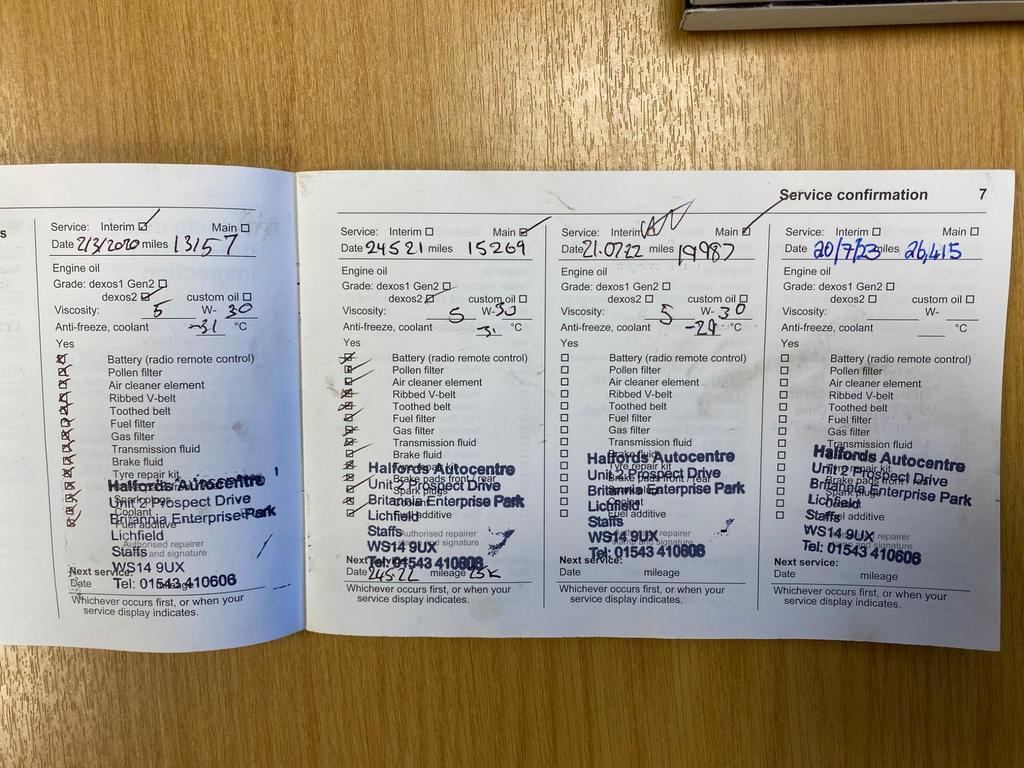 s
Service confirmation 7
Service: Interim Main
Date 2/3/2020 miles 13157
Engine oil
Grade: dexos1 Gen2
dexos2 custom oil
Viscosity: 5 W- 30
Anti-freeze, coolant -31 °C
Yes
Battery (radio remote control)
Pollen filter
Air cleaner element
Ribbed V-belt
Toothed belt
Fuel filter
Gas filter
Transmission fluid
Brake fluid
Tyre repair kit
Halfords Autocentre
Spark plugs
Unit 2 Prospect Drive
Coolant
Britannia Enterprise Park
Fuel additive
Lichfield
Authorised repairer
Staffs
and signature
WS14 9UX
Next service:
Tel: 01543 410606
Date mileage
Whichever occurs first, or when your
service display indicates.
Service: Interim Main
Date 24521 miles 15269
Engine oil
Grade: dexos1 Gen2
dexos2 custom oil
Viscosity: 5 W- 30
Anti-freeze, coolant -31 °C
Yes
Battery (radio remote control)
Pollen filter
Air cleaner element
Ribbed V-belt
Toothed belt
Fuel filter
Gas filter
Transmission fluid
Brake fluid
Tyre repair kit
Halfords Autocentre
Brake pads front / rear
Unit 2 Prospect Drive
Spark plugs
Britannia Enterprise Park
Coolant
Lichfield
Fuel additive
Staffs
Authorised repairer
WS14 9UX
and signature
Tel: 01543 410606
Next service:
Date 24522 mileage 25K
Whichever occurs first, or when your
service display indicates.
Service: Interim Main
Date 21.07.22 miles 19987
Engine oil
Grade: dexos1 Gen2
dexos2 custom oil
Viscosity: 5 W- 30
Anti-freeze, coolant -29 °C
Yes
Battery (radio remote control)
Pollen filter
Air cleaner element
Ribbed V-belt
Toothed belt
Fuel filter
Gas filter
Transmission fluid
Brake fluid
Halfords Autocentre
Tyre repair kit
Unit 2 Prospect Drive
Brake pads front / rear
Britannia Enterprise Park
Lichfield
Coolant
Fuel additive
Staffs
Authorised repairer
WS14 9UX
stamp and signature
Tel: 01543 410606
Next service:
Date mileage
Whichever occurs first, or when your
service display indicates.
Service: Interim Main
Date 20/7/23 miles 26,415
Engine oil
Grade: dexos1 Gen2
dexos2 custom oil
Viscosity: W-
Anti-freeze, coolant °C
Yes
Battery (radio remote control)
Pollen filter
Air cleaner element
Ribbed V-belt
Toothed belt
Fuel filter
Gas filter
Transmission fluid
Halfords Autocentre
Tyre repair kit
Unit 2 Prospect Drive
Brake pads front / rear
Britannia Enterprise Park
Spark plugs
Lichfield
Staffs
Authorised repairer
WS14 9UX
stamp and signature
Tel: 01543 410606
Next service:
Date mileage
Whichever occurs first, or when your
service display indicates.